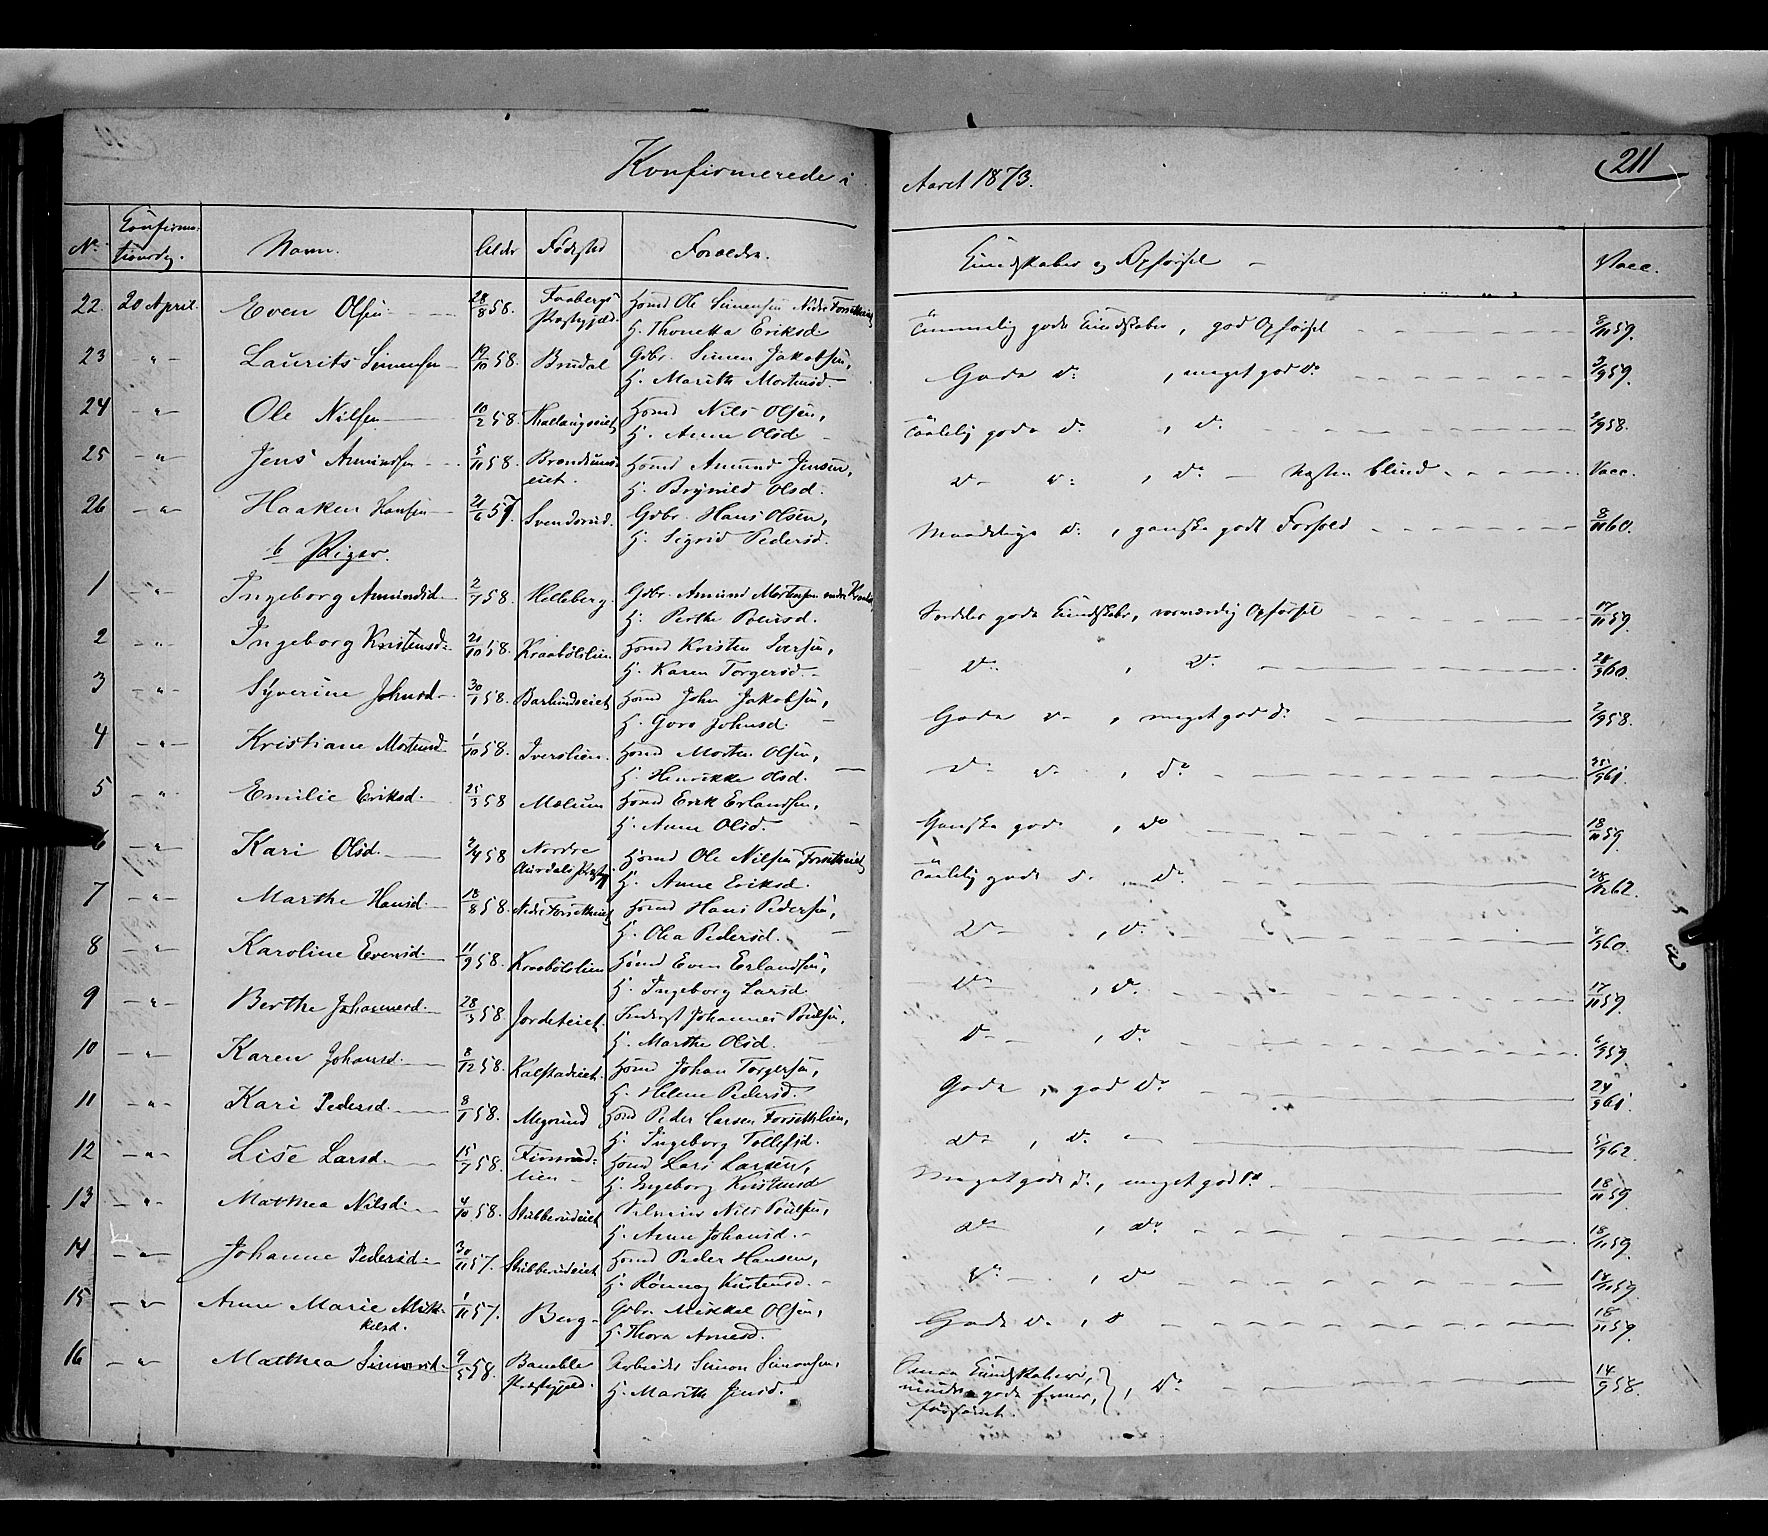 Konfirmerede i Aaret 1873.
211
No. Konfirma-tionsdag. Navn. Alder Fødested Forældre. Kundskaber og Opførsel Vacc.
22. 20 April. Even Olsen 28/8 58. Faabergs Præstegjæld. Hsmd Ole Simensen Nedre Forsetheiet H. Thonetta Eriksd Temmelig gode Kundskaber, god Opførsel 8/11 59.
23 " Laurits Simensen 19/10 58. Brudal Gdbr. Simen Jakobsen, H. Marith Mortensd. Gode do , meget god do 2/9 59.
24 " Ole Nilsen 10/2 58. Hsmd Nils Olsen, H. Anne Olsd Taalelig gode do , do 2/9 58.
25 " Jens Amundsen 5/11 58. Hsmd Amund Jensen, H. Brynild Olsd. do do , do næsten blind Vacc.
26 " Haaken Hansen 21/6 57. Svendsrud. Gdbr. Hans Olsen, H. Sigrid Pedersd. Maadelige do , ganske godt Forhold 8/11 60.
b Piger.
1 " Ingeborg Amundsd. 2/7 58. Helleberg. Gdbr. Amund Mortensen H. Berthe Poulsd. Særdeles gode Kundskaber, Opførsel 17/11 59.
2 " Ingeborg Kristensd. 21/10 58. Kraabølslien Hsmd Kristen Iversen, H. Karen Torgersd. do , do 28/9 60.
3 " Syverine Johnsd. 30/1 58. Barlundseiet Hsmd John Jakobsen, H. Goro Johnsd. Gode do , meget god do 2/9 58.
4 " Kristiane Mortensd. 1/10 58. Iverslien. Hsmd Morten Olsen, H. Henrikke Olsd. do do , do 61.
5 " Emilie Eriksd. 25/3 58 Mælum Hsmd Erik Erlandsen, H. Anne Olsd. Ganske gode , do 18/11 59.
6 " Kari Olsd. 58 Nordre Aurdals Præstegj. Hsmd Ole Nilsen Forsetheiet H. Anne Eriksd. Taalelig gode do , do 62.
7 " Marthe Hansd. 18/8 58. Nedre Forsetheiet Hsmd Hans Pedersen, H. Olia Pedersd. do , do 60.
8 " Karoline Evensd. 11/9 58. Kraabølslien Hsmd Even Erlandsen, H. Ingeborg Larsd. do , do 17/11 59.
9 " Berthe Johannesd. 28/3 58. Jordeteiet. Johannes Poulsen, H. Marthe Olsd. do , do 59.
10 " Karen Johansd. 8/12 58. Kalstadeiet. Hsmd Johan Torgersen, H. Helene Pedersd. Gode , god do 24/9 61.
11 " Kari Pedersd. 8/1 58. Megrund Hsmd Peder Larsen Forsethlien, H. Ingeborg Tollefsd. do , do 5/9 62.
12 " Lise Larsd. 15/7 58. Finsrud-lien Hsmd Lars Larsen, H. Ingeborg Kristensd Meget gode do , meget god do 18/11 59.
13 " Mathea Nilsd. 4/10 58. Stubberudeiet Nils Poulsen, H. Anne Johansd. do , do 18/11 59.
14 " Johanne Pedersd. 30/11 57. Stubberudeiet Hsmd Peder Hansen, H. Rønnog Kristensd. do , do 18/11 59.
15 " Anne Marie Mik-kelsd. 1/11 57. Berg Gdbr. Mikkel Olsen, H. Thora Arnesd. Gode do , do 18/11 59.
16 " Mathea Simensd. 9/5 58. Bamble Præstegjeld. Arbeider Simon Simonsen, H. Marith Jensd. Kundskaber, mindre gode , do 14/9 58.